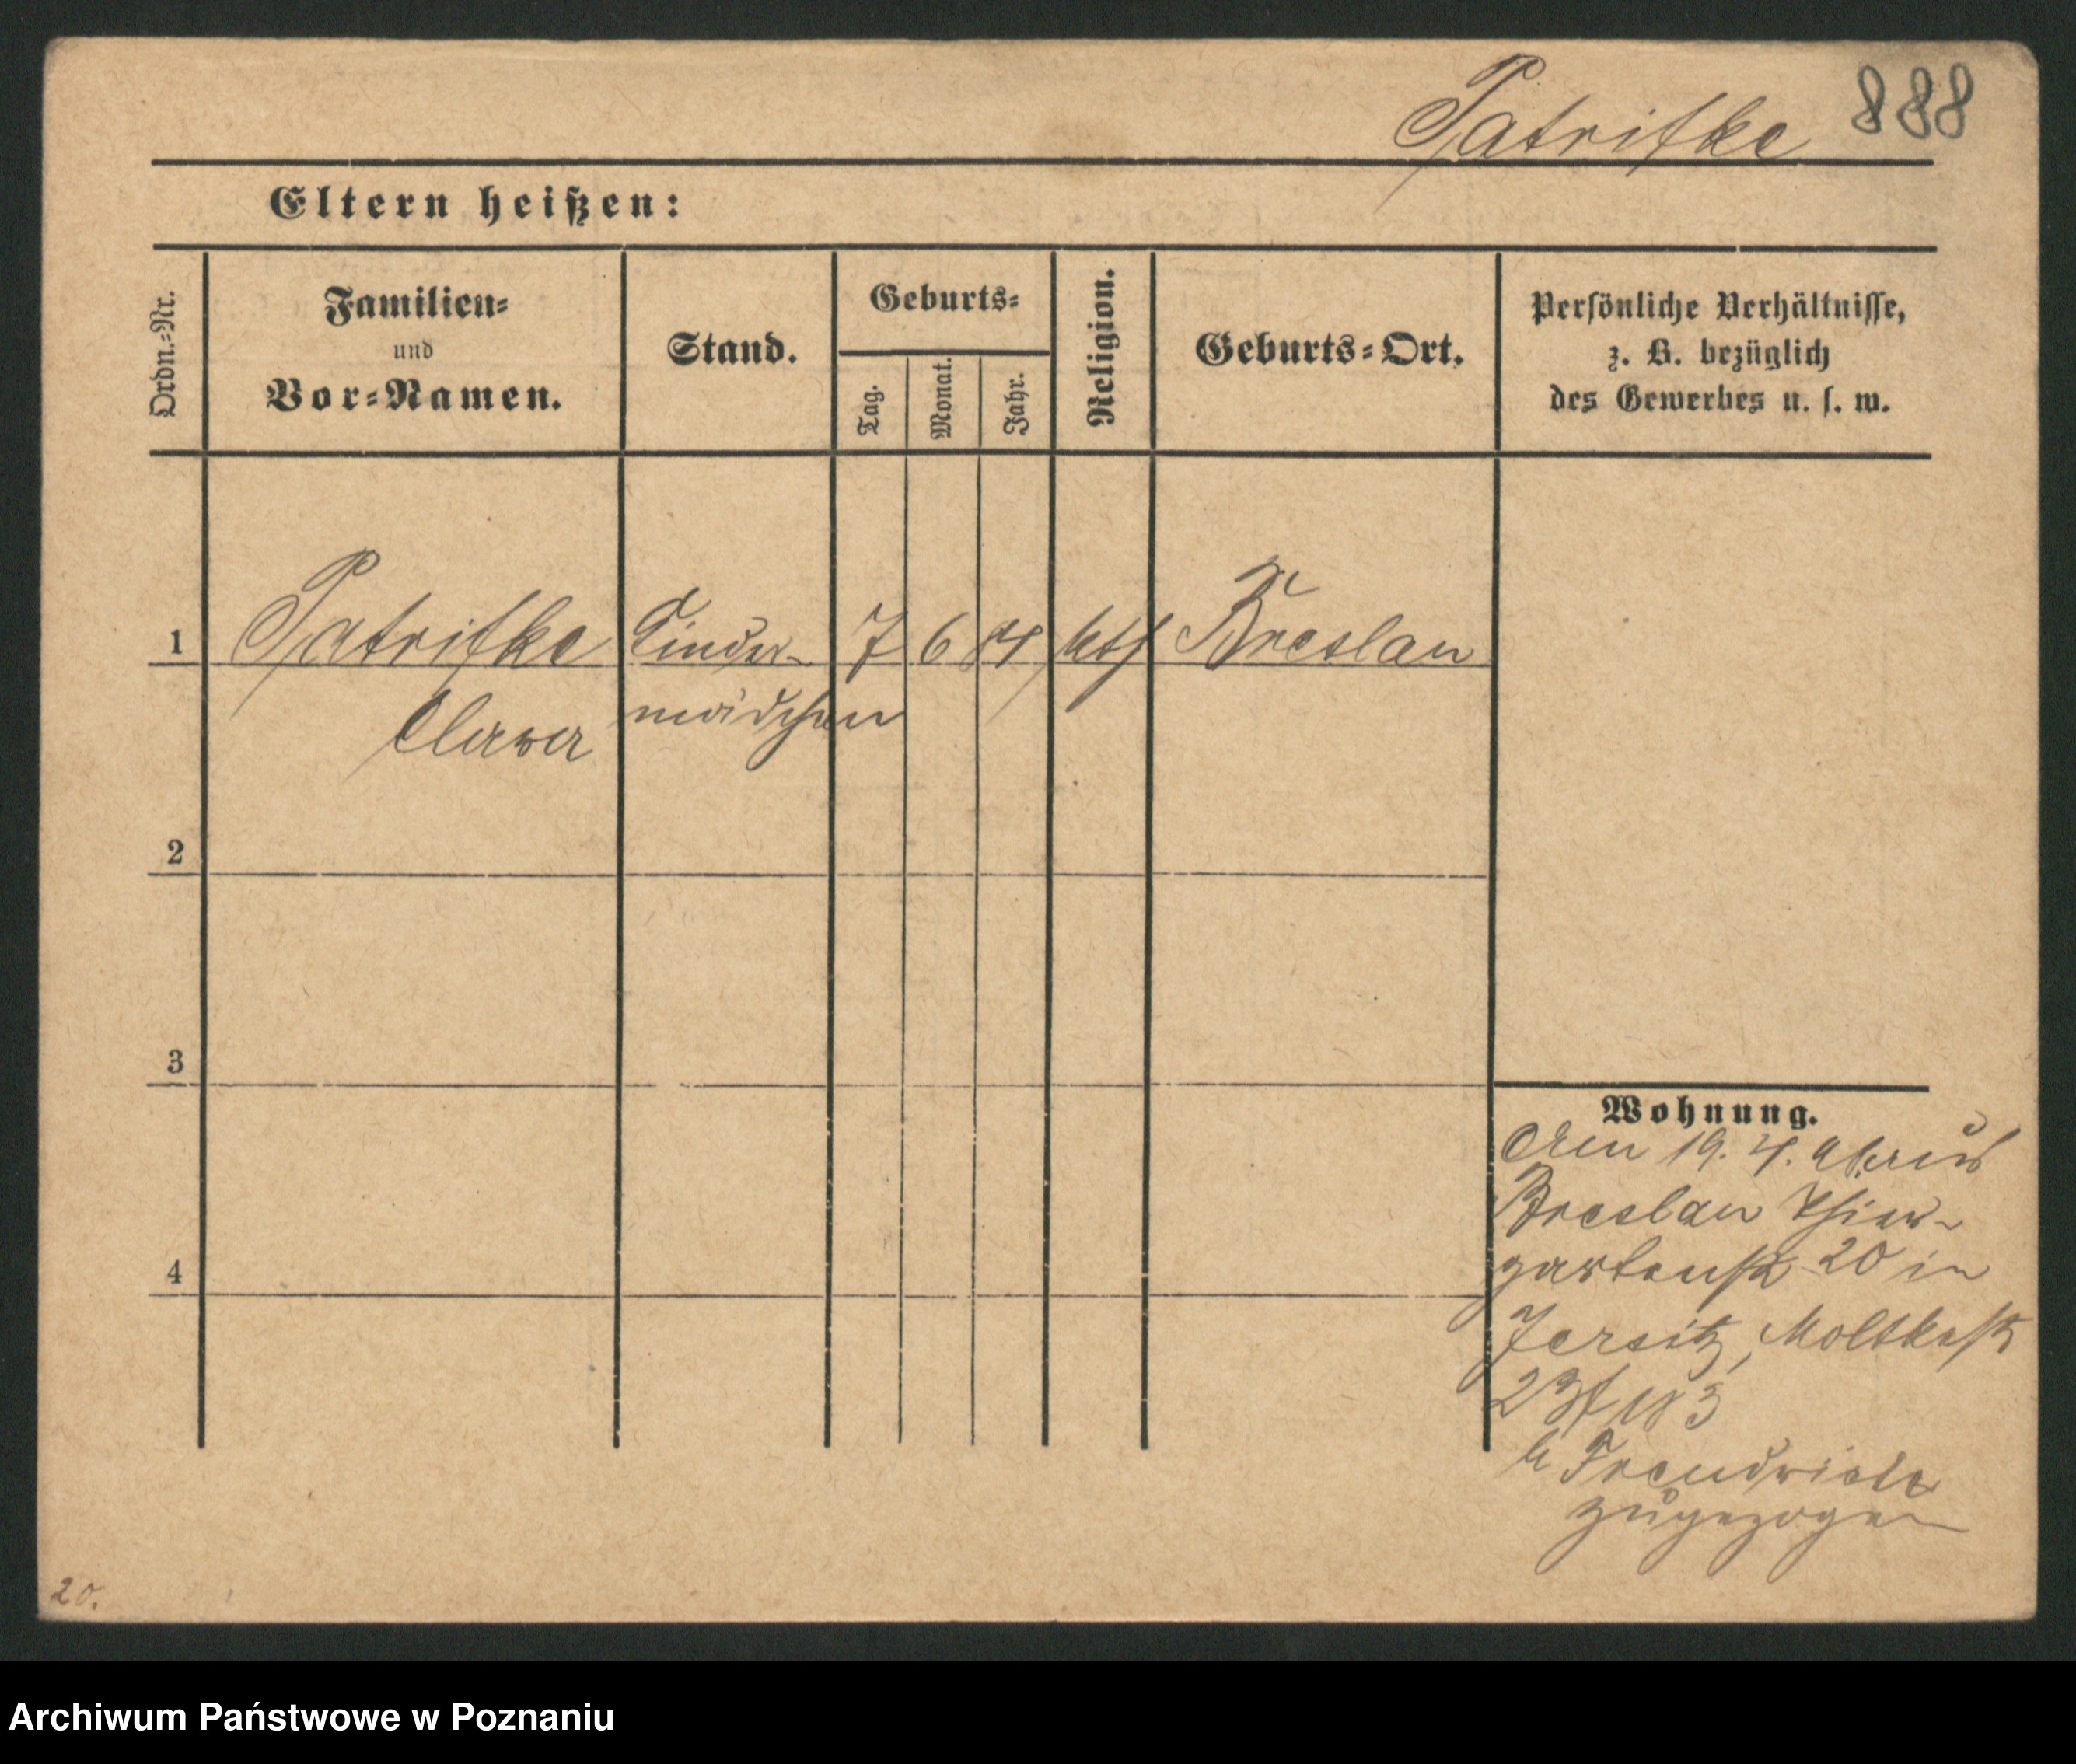 Patritzke 888
Eltern heißen:
Ordn.-Nr.
Familien-
und
Vor-Namen.
Stand.
Geburts-
Tag.
Monat.
Jahr.
Religion.
Geburts-Ort.
Persönliche Verhältnisse,
z. B. bezüglich
des Gewerbes u. s. w.
1 Kinder- 7 6 84 kth Breslau
Clara mädchen
2
3
4
Wohnung.
19. 4. aus
Breslau Thier-
gartenstr 20 in
Jersitz, Moltkestr
zugezogen
20.
Archiwum Państwowe w Poznaniu